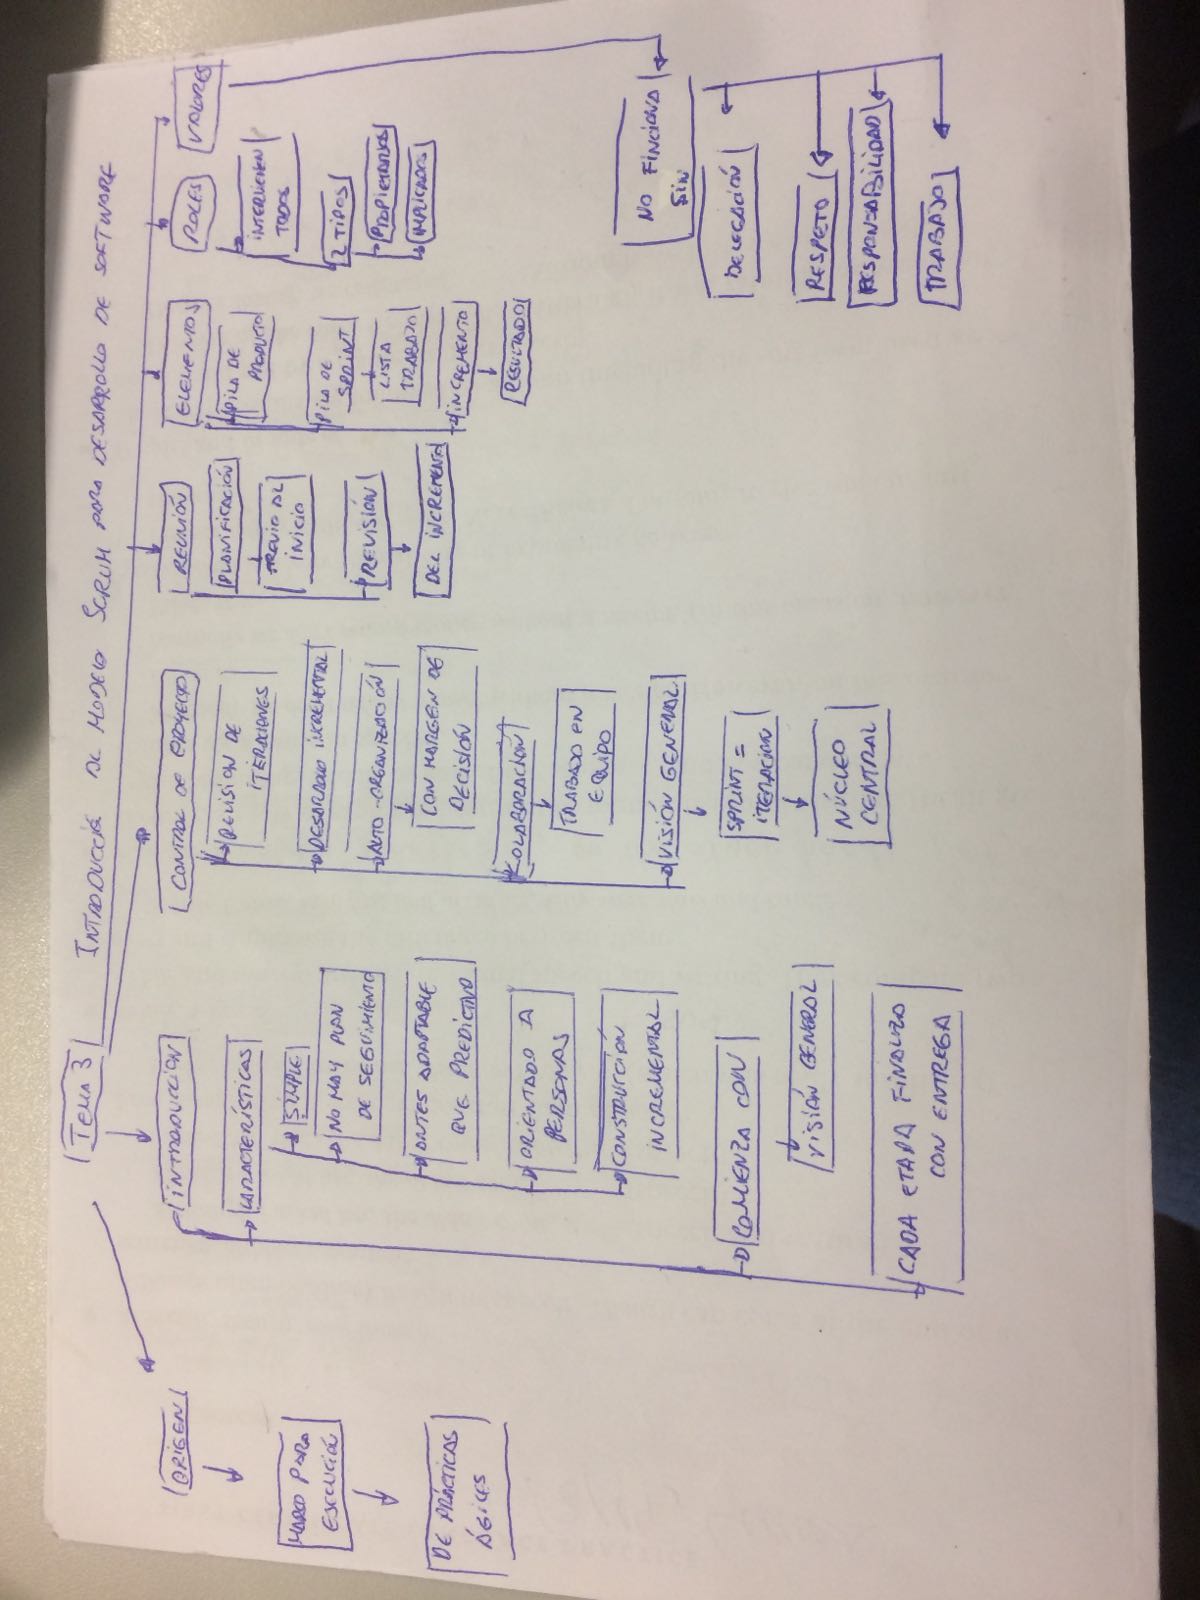 TEMA 3
INTRODUCCIÓN AL MODELO SCRUM PARA DESARROLLO DE SOFTWARE
ORIGEN
MARCO PARA
ESCUCIÓN
DE PRÁCTICAS
ÁGILES
INTRODUCCIÓN
CARACTERÍSTICAS
SIMPLE
NO HAY PLAN
DE SEGUIMIENTO
ANTES ADAPTABLE
QUE PREDICTIVO
ORIENTADO A
PERSONAS
CONSTRUCCIÓN
INCREMENTAL
COMIENZA CON
VISIÓN GENERAL
CADA ETAPA FINALIZA
CON ENTREGA
CONTROL DE PROYECTO
REVISION DE
ITERACIONES
DESARROLLO INCREMENTAL
AUTO-ORGANIZACIÓN
CON MARGEN DE
DECISIÓN
COLABORACIÓN
TRABADO EN
EQUIPO
VISIÓN GENERAL
SPRINT =
ITERACIÓN
NÚCLEO
CENTRAL
REUNIÓN
PLANIFICACIÓN
PREVIO AL
INICIO
REVISIÓN
DEL INCREMENTO
ELEMENTOS
PILA DE
PRODUCTO
PILA DE
SPRINT
LISTA
TRABAJO
INCREMENTO
RESULTADO
ROLES
INTERVIENEN
TODOS
2 TIPOS
PROPIETARIOS
IMPLICADOS
VALORES
NO FINCIONA
SIN
DELEGACIÓN
RESPETO
RESPONSABILIDAD
TRABAJO